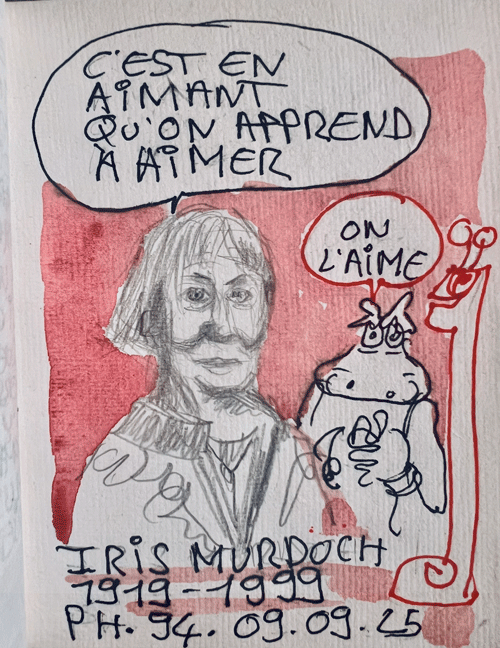 C'EST EN
AIMANT
QU'ON APPREND
À AIMER
ON
L'AIME
IRIS MURDOCH
1919-1999
PH. 94. 09.09.25